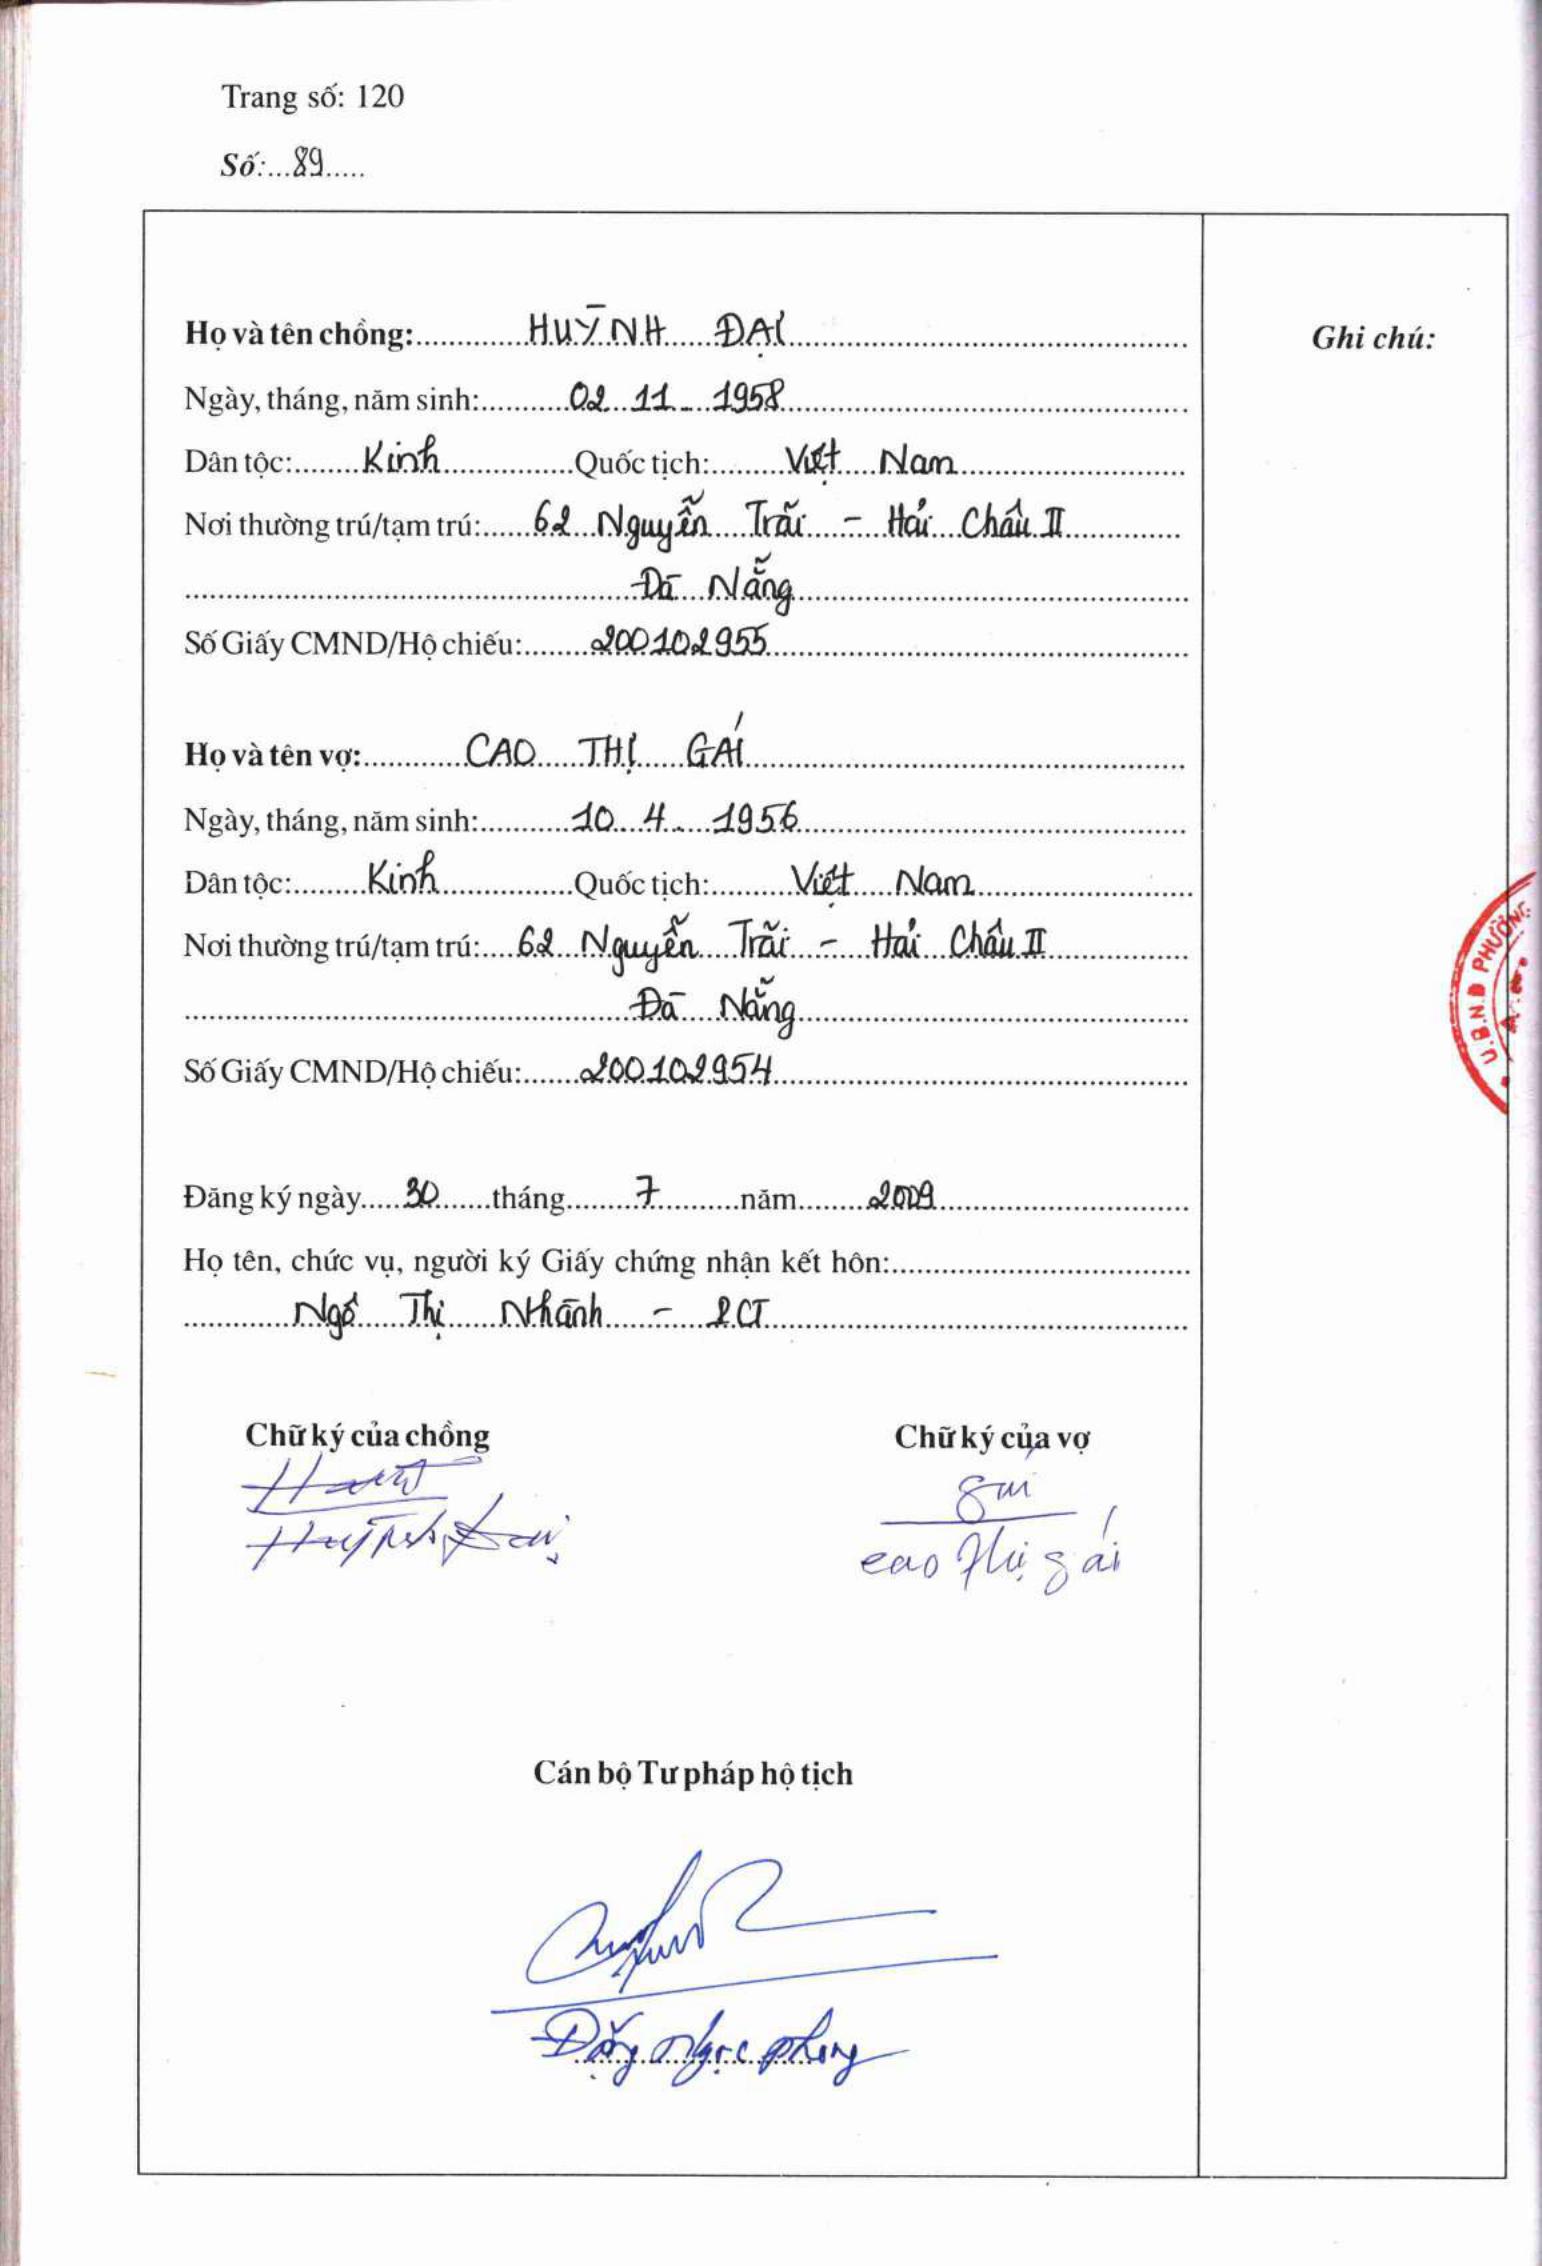 Trang số: 120
Số:...89.....
Họ và tên chồng: HUỲNH ĐẠI
Ghi chú:
Ngày, tháng, năm sinh: 02 11 - 1958
Dân tộc: Kinh Quốc tịch: Việt Nam
Nơi thường trú/tạm trú: 62 Nguyễn Trãi - Hải Châu II
Đà Nẵng
Số Giấy CMND/Hộ chiếu: 200102955
Họ và tên vợ: CAO THỊ GÁI
Ngày, tháng, năm sinh: 10 4 - 1956
Dân tộc: Kinh Quốc tịch: Việt Nam
Nơi thường trú/tạm trú: 62 Nguyễn Trãi - Hải Châu II
Đà Nẵng
Số Giấy CMND/Hộ chiếu: 200102954
U.B.N.D PHƯỜNG
Đăng ký ngày 30 tháng 7 năm 2009
Họ tên, chức vụ, người ký Giấy chứng nhận kết hôn:
Ngô Thị Nhành - PCT
Chữ ký của chồng
Chữ ký của vợ
Gái
Huỳnh Đại
Cao Thị Gái
Cán bộ Tư pháp hộ tịch
Đặng Ngọc Phong